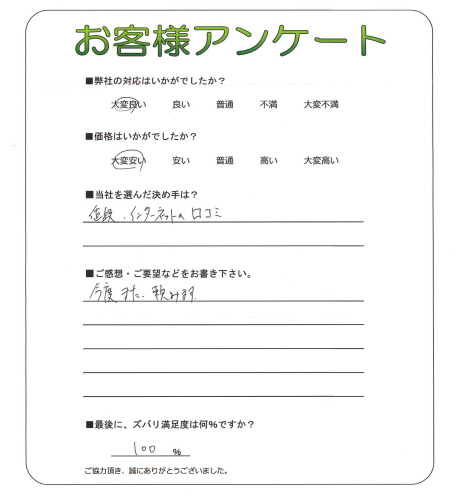 お客様アンケート
■弊社の対応はいかがでしたか？
大変良い 良い 普通 不満 大変不満
■価格はいかがでしたか？
大変安い 安い 普通 高い 大変高い
■当社を選んだ決め手は？
値段、インターネットの口コミ
■ご感想・ご要望などをお書き下さい。
今度また、頼みます。
■最後に、ズバリ満足度は何%ですか？
100 %
ご協力頂き、誠にありがとうございました。